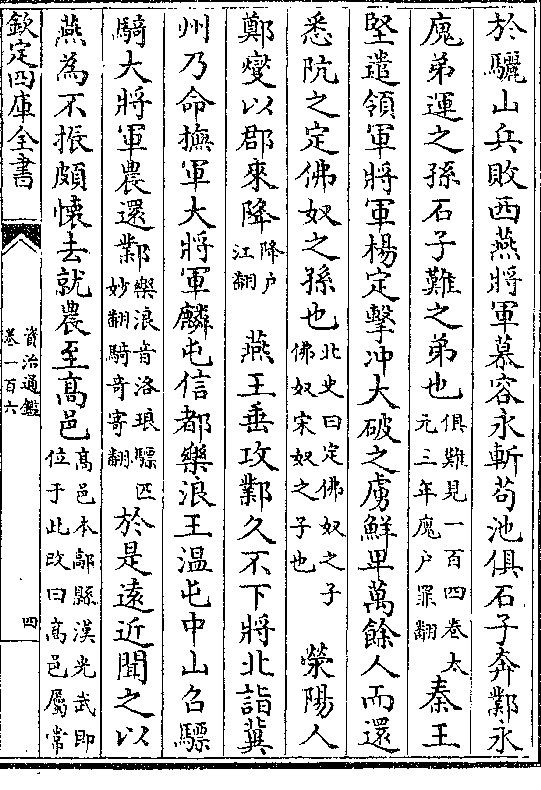 於驪山兵敗西燕將軍慕容永斬苟池俱石子奔鄴永
廆弟運之孫石子難之弟也俱難見一百四卷太元三年廆戸罪翻秦王
堅遣領軍將軍楊定擊冲大破之虜鮮卑萬餘人而還
悉阬之定佛奴之孫也北史曰定佛奴之子佛奴宋奴之子也滎陽人
鄭燮以郡來降降戸江翻燕王垂攻鄴久不下將北詣冀
州乃命撫軍大將軍麟屯信都樂浪王温屯中山召驃
騎大將軍農還鄴樂浪音洛琅驃匹妙翻騎奇寄翻於是遠近聞之以
燕為不振頗懷去就農至高邑高邑本鄗縣漢光武即位于此改曰高邑屬常
欽定四庫全書
資治通鑑
卷一百六
四